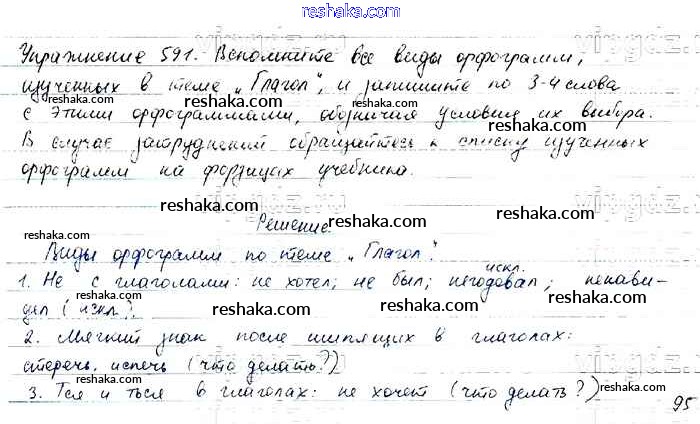 reshaka.com
Упражнение 591. Вспомните все виды орфограмм,
изученных в теме „Глагол", и запишите по 3-4 слова
с этими орфограммами, обозначая условия их выбора.
В случае затруднений обращайтесь к списку изученных
орфограмм на форзацах учебника.
Решение.
Виды орфограмм по теме „Глагол".
1. Не с глаголами: не хотел; не был; негодовал; ненави-
искл.
дел (искл).
2. Мягкий знак после шипящих в глаголах:
стеречь, испечь (что делать?)
3. Тся и ться в глаголах: не хочет (что делать?)
95
reshaka.com
reshaka.com
reshaka.com
reshaka.com
reshaka.com
reshaka.com
reshaka.com
reshaka.com
reshaka.com
reshaka.com
reshaka.com
reshaka.com
reshaka.com
vipgdz.ru